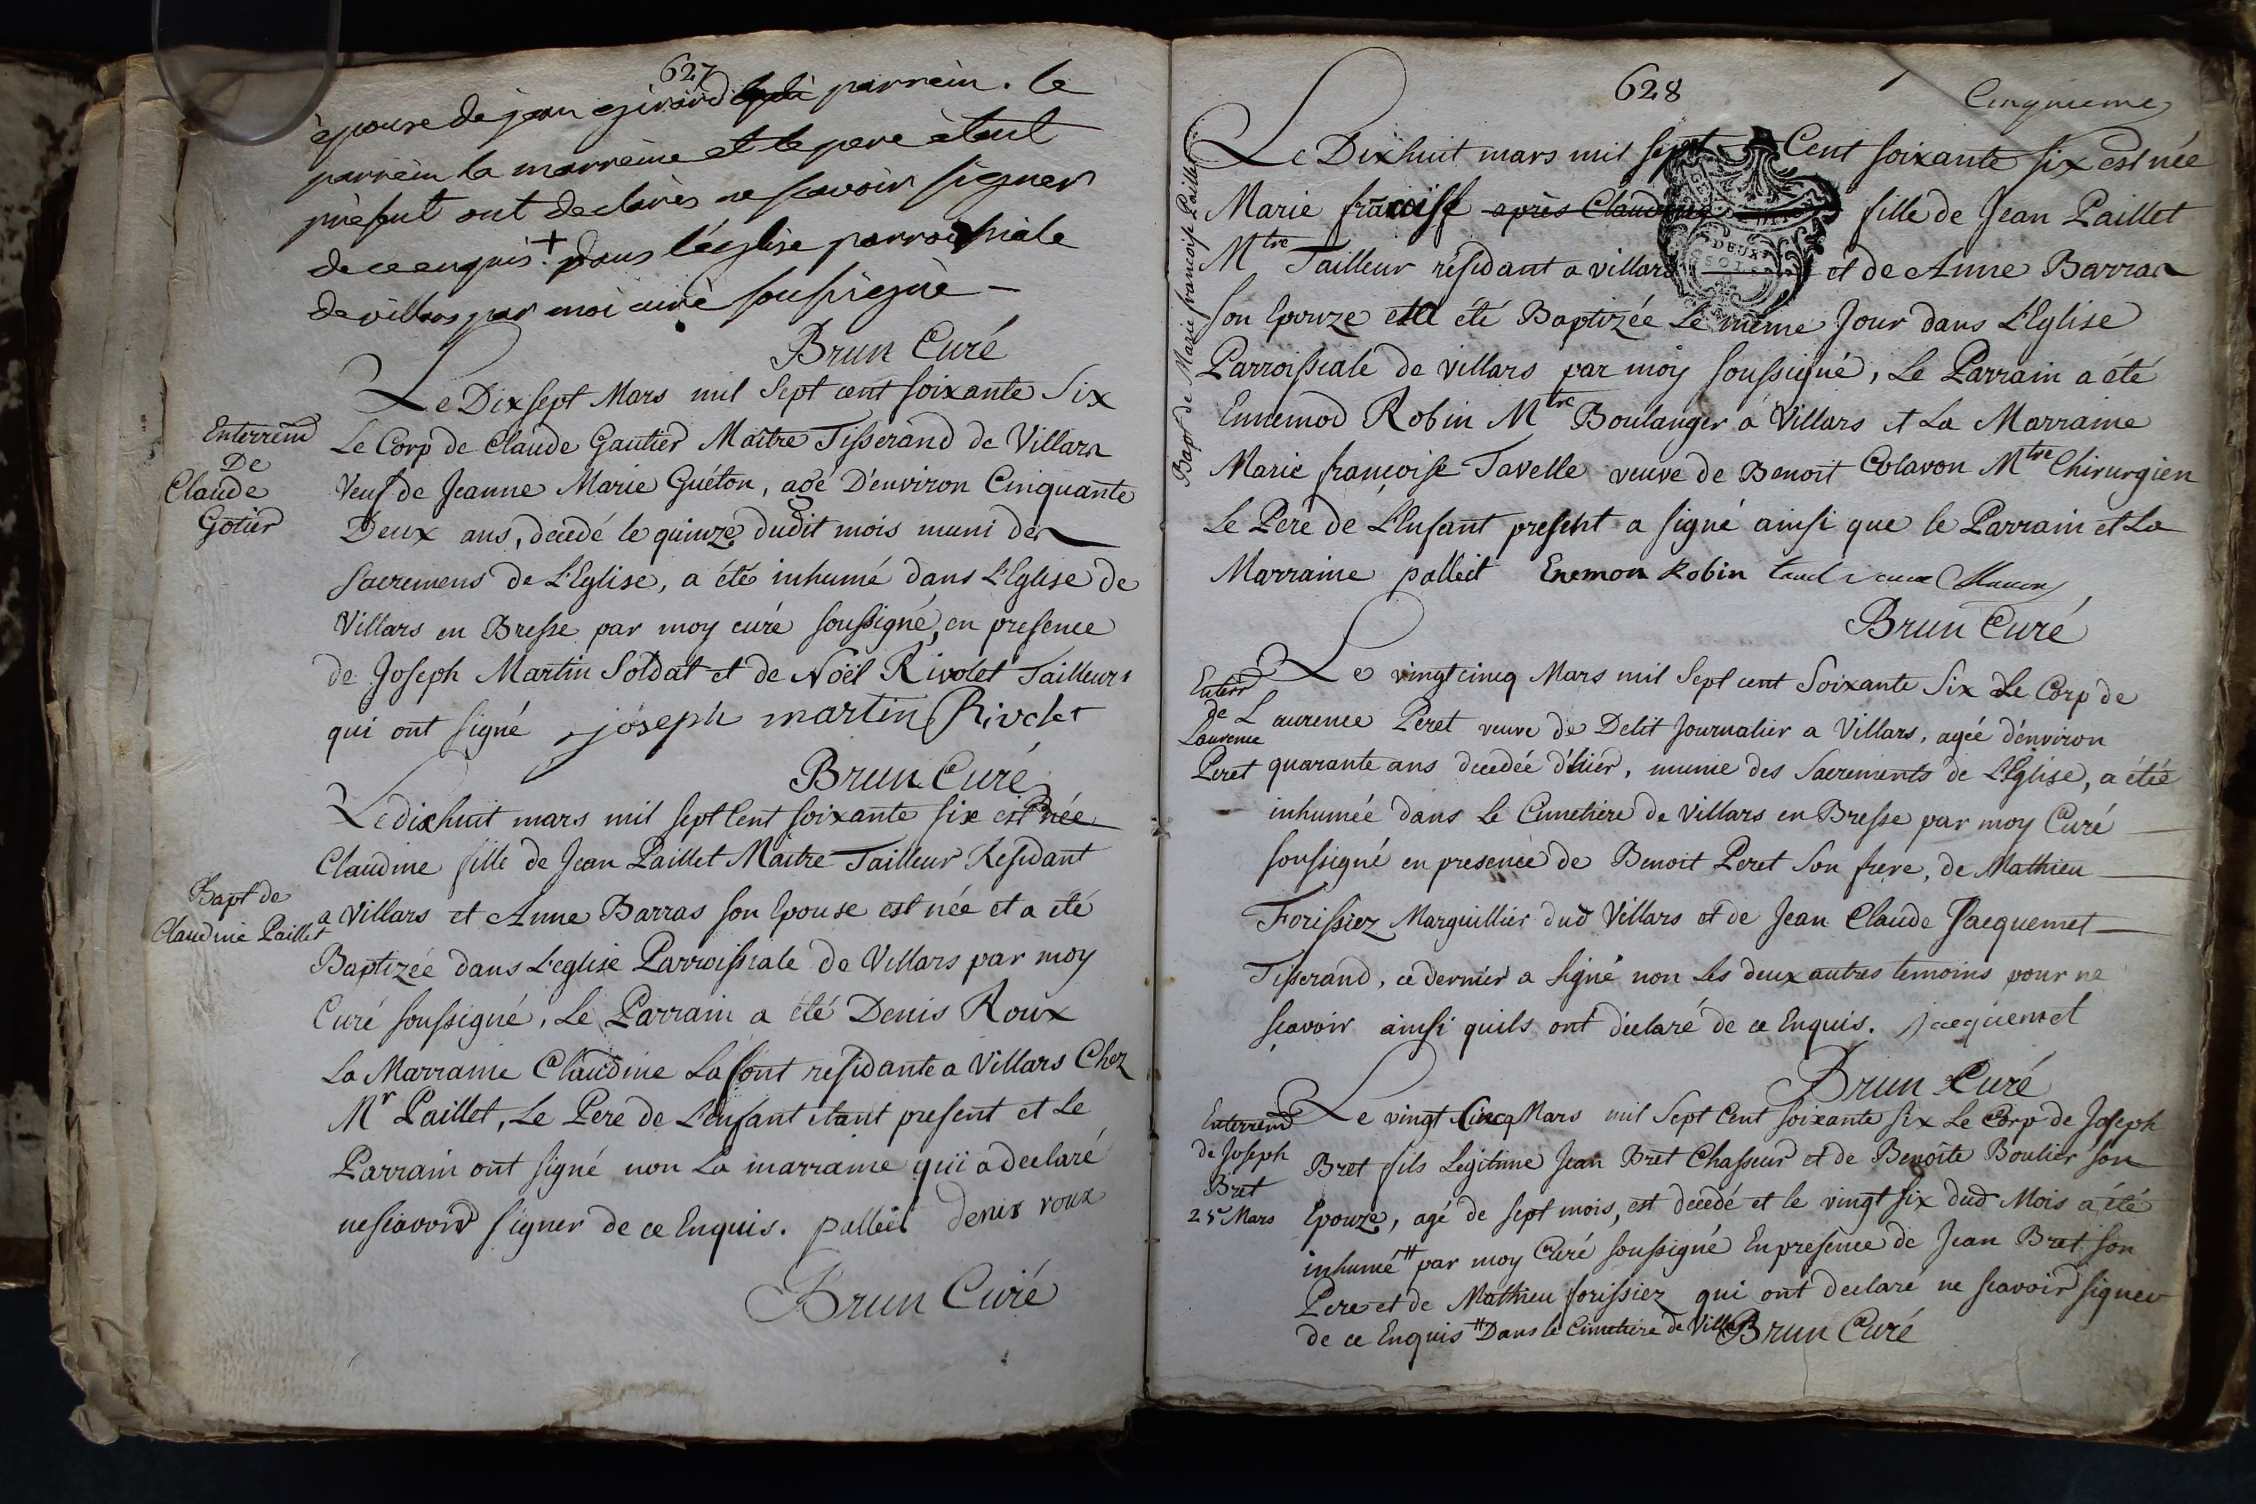 627
épouse de jean girard parrein. le
parrein la marreine et le pere étant
présent ont declarés ne scavoir signer
de ce enquis. + dans l'église parroissiale
de villars par moi curé soussigné
Brun Curé
Enterrem̃t
De
Claude
Gotier
Le Dix sept Mars mil Sept cent soixante Six
Le Corp de Claude Gautier Maitre Tisserand de Villars
Veuf de Jeanne Marie Guéton, agé D'environ Cinquante
Deux ans, decedé le quinze dudit mois muni des
Sacremens de L'Eglise, a été inhumé dans L'Eglise de
Villars en Bresse par moy curé soussigné, en presence
de Joseph Martin Soldat et de Noël Rivolet Tailleurs
qui ont signé joseph martin Rivolet
Brun Curé
Bapt de
Claudine Paillet
Le dixhuit mars mil sept Cent soixante six est née
Claudine fille de Jean Paillet Maitre Tailleur Résidant
a Villars et Anne Barras son Epouse est née et a été
Baptizée dans L'eglise Parroissiale de Villars par moy
Curé soussigné, Le Parrain a été Denis Roux
La Marraine Claudine Lafont residante a Villars Chez
Mr Paillet, Le Pere de L'enfant etant present et Le
Parrain ont signé non La marraine qui a declaré
ne sçavoir signer de ce Enquis. palleit denis roux
Brun Curé
628
Cinquieme
Bapt de Marie francoise Paillet
Le Dixhuit mars mil sept Cent soixante six est née
Marie frãcoise après Claudine fille de Jean Paillet
Mtre Tailleur résidant a villars et de Anne Barras
son Epouze et a été Baptizée Le même Jour dans L'Eglise
Parroissiale de villars par moy soussigné, Le Parrain a été
Ennemod Robin Mtre Boulanger a Villars et La Marraine
Marie françoise Tavelle veuve de Benoit Colavon Mtre Chirurgien
Le Pere de L'Enfant present a signé ainsi que le Parrain et La
Marraine palleit Enemon Robin
Brun Curé
Enterr
de
Laurence
Peret
Le vingt cincq Mars mil Sept cent Soixante Six Le Corp de
Laurence Peret veuve de Delit Journalier a Villars, agée d'environ
quarante ans decedée d'hier, munie des Sacrements de L'Eglise, a été
inhumée dans Le Cimetiere de Villars en Bresse par moy Curé
soussigné en presence de Benoit Peret Son frere, de Mathieu
Forissiez Marguillier dud Villars et de Jean Claude Jacquemet
Tisserand, ce dernier a signé non Les deux autres temoins pour ne
sçavoir ainsi quils ont déclaré de ce Enquis. Jacquemet
Brun Curé
Enterrem̃t
de Joseph
Bret
25e Mars
Le vingt Cincq Mars mil Sept Cent soixante six Le Corp de Joseph
Bret fils Legitime Jean Bret Chasseur et de Benoîte Boulier son
Epouze, agé de sept mois, est decedé et le vingt six dud Mois a été
inhumé # par moy Curé soussigné En presence de Jean Bret son
Pere et de Mathieu forissiez qui ont declaré ne scavoir signer
de ce Enquis # Dans le Cimetiere de Villars Brun Curé